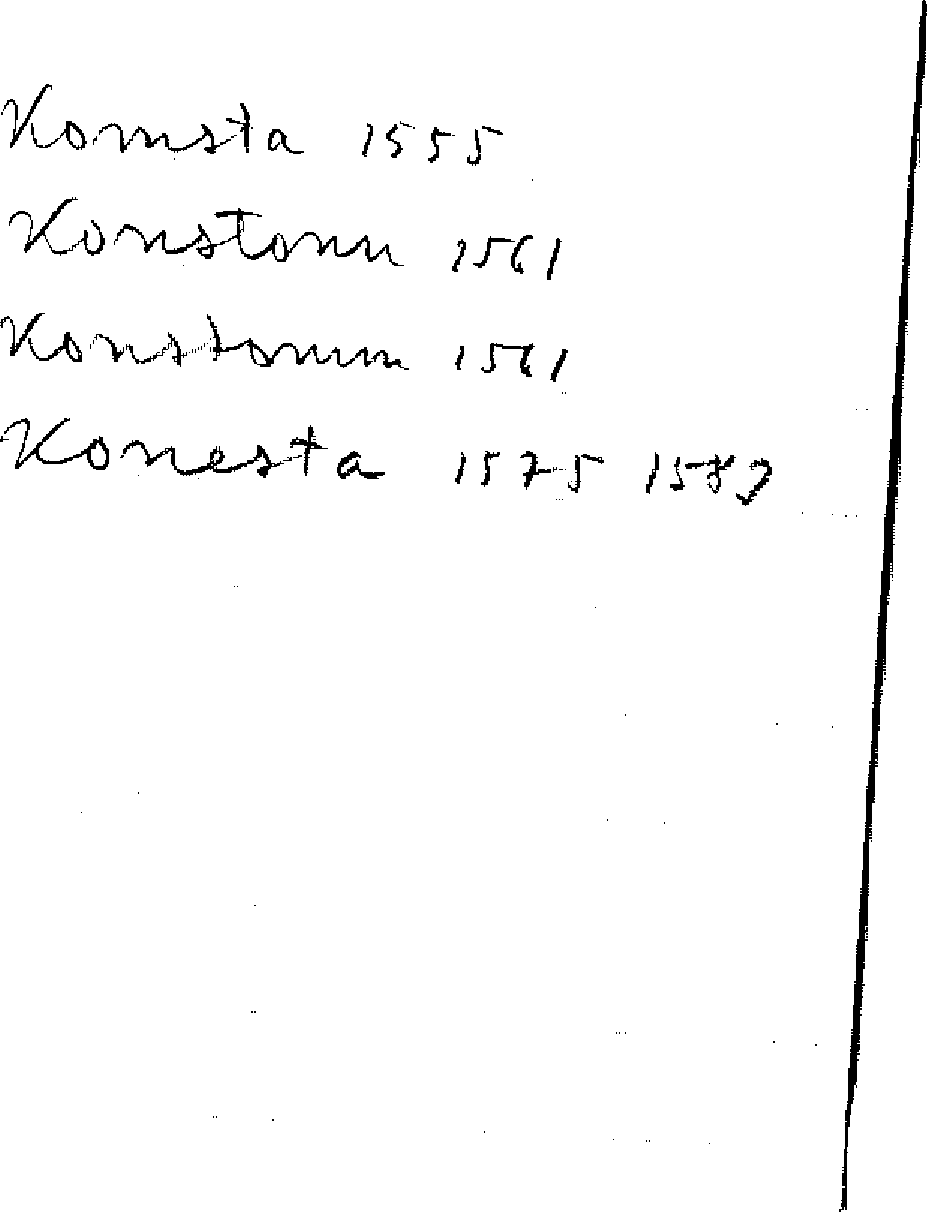 Komsta 1555
Konstonu 1561
Konstomm 1561
Konesta 1575 1589